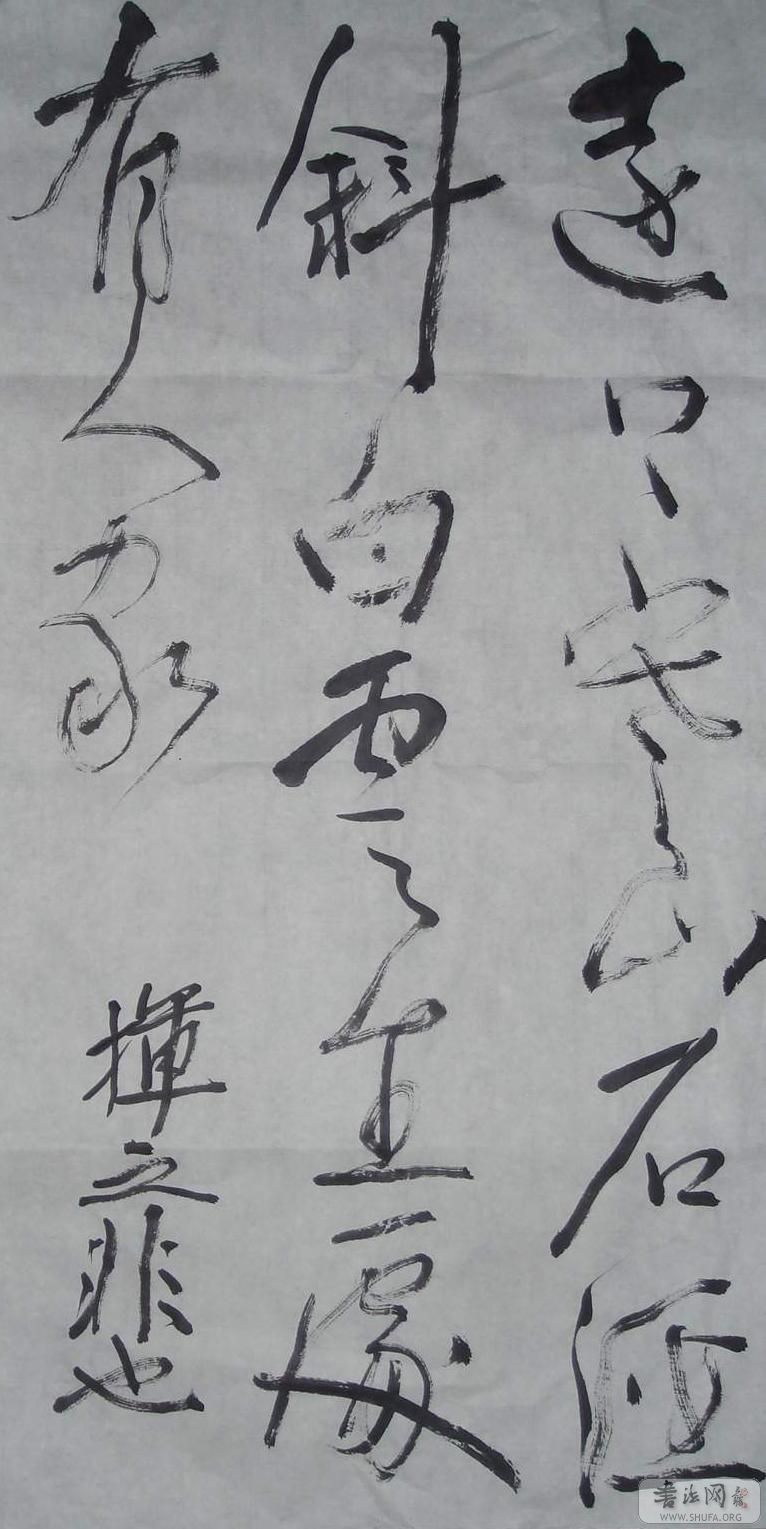 遠上寒山石徑
斜白雲生處
有人家
揮之非也
書法网
WWW.SHUFA.ORG